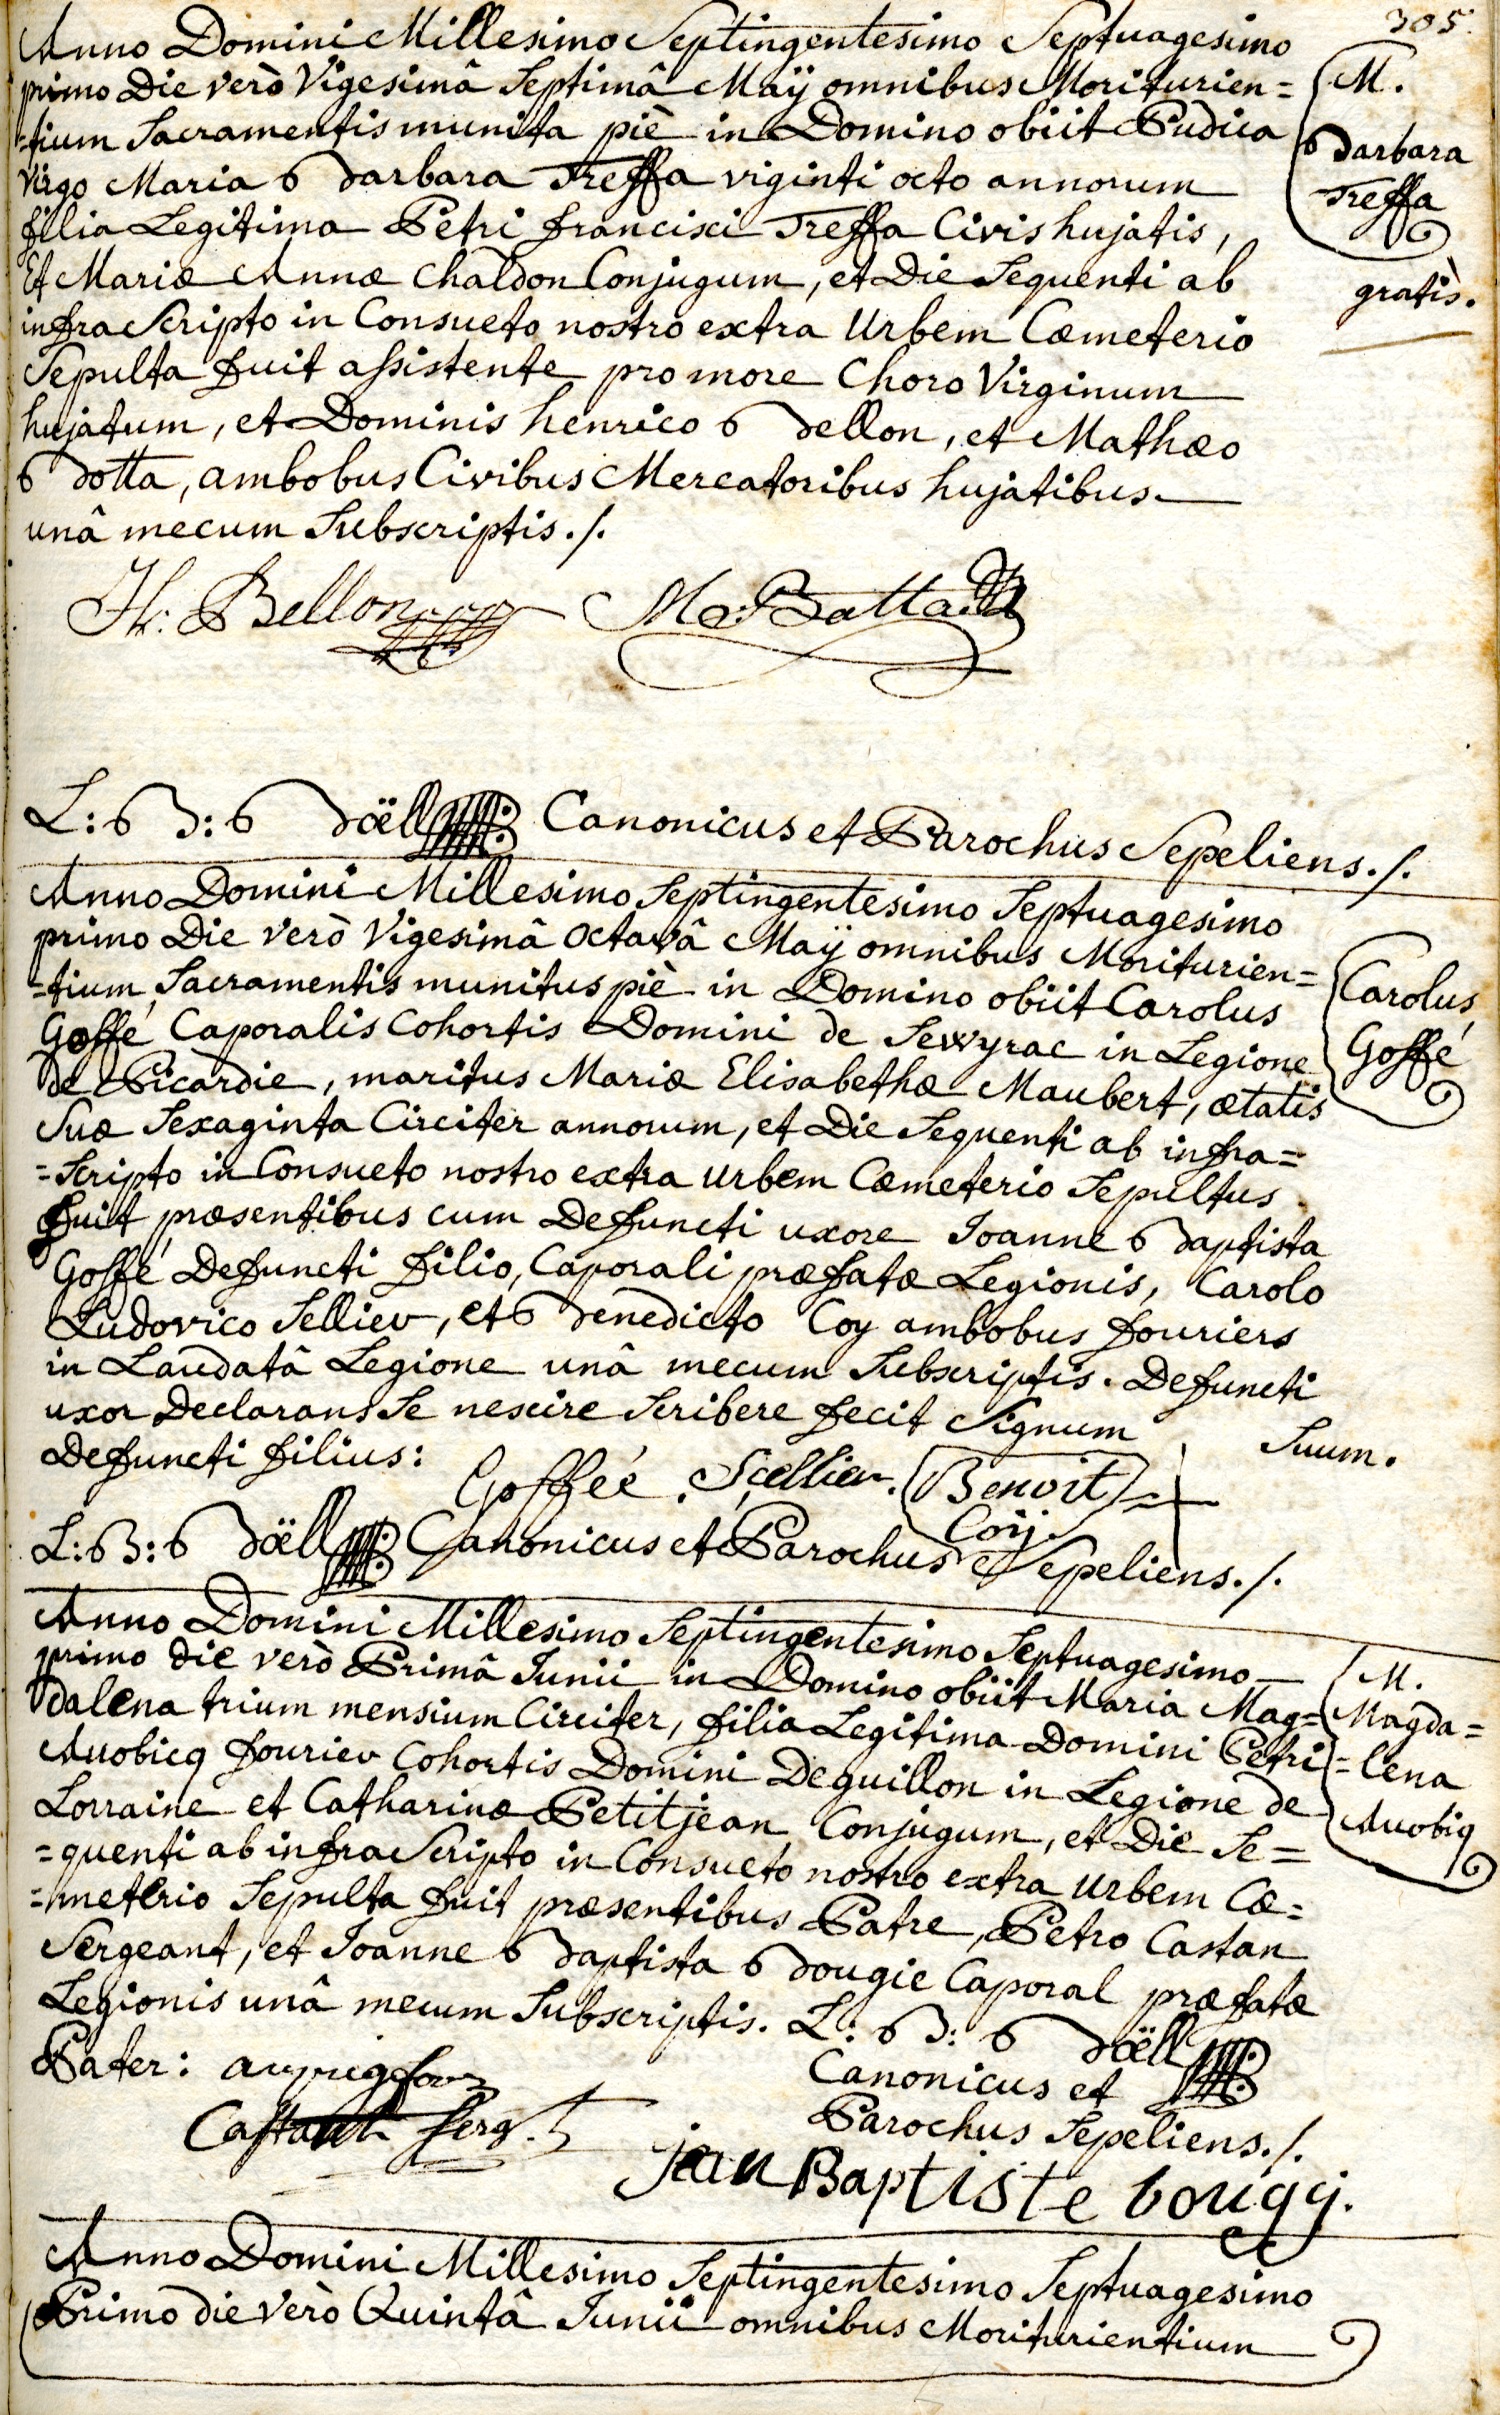 305.
Anno Domini Millesimo Septingentesimo Septuagesimo
primo Die verò Vigesimâ Septimâ Maÿ omnibus Moriturien=
=tium Sacramentis munita piè in Domino obiit Pudica
Virgo Maria Barbara Treffa viginti octo annorum
filia Legitima Petri Francisci Treffa Civis hujatis,
Et Mariæ Annæ Chaldon Conjugum, et Die Sequenti ab
infra Scripto in Consueto nostro extra Urbem Cœmeterio
Sepulta fuit assistente pro more Choro Virginum
hujatum, et Dominis henrico Bellon, et Mathæo
Botta, ambobus Civibus Mercatoribus hujatibus
unâ mecum Subscriptis ./.
M.
Barbara
Treffa
gratis.
H: Bellon M: Batta
L: B: Boëll Canonicus et Parochus Sepeliens ./.
Anno Domini Millesimo Septingentesimo Septuagesimo
primo Die verò Vigesimâ Octavâ Maÿ omnibus Moriturien=
=tium Sacramentis munitus piè in Domino obiit Carolus
Goffé Caporalis Cohortis Domini de in Legione
de Picardie, maritus Mariæ Elisabethæ Maubert, ætatis
Suæ Sexaginta Circiter annorum, et Die Sequenti ab infra=
=Scripto in Consueto nostro extra Urbem Cœmeterio Sepultus
fuit præsentibus cum Defuncti uxore Joanne Baptista
Goffé Defuncti filio, Caporali præfatæ Legionis, Carolo
Ludovico Sellier, et Benedicto Coy ambobus fouriers
in Laudatâ Legione unâ mecum Subscriptis. Defuncti
uxor Declarans Se nescire Scribere fecit Signum Suum.
Carolus
Goffé
Defuncti filius: Goffée. Scellier. Benoit
Coij.
L: B: Boëll Canonicus et Parochus Sepeliens ./.
Anno Domini Millesimo Septingentesimo Septuagesimo
primo die verò Primâ Junii in Domino obiit Maria Mag=
dalena trium mensium Circiter, filia Legitima Domini Petri
Auobicq fourier Cohortis Domini Deguillon in Legione de
Lorraine et Catharinæ Petitjean Conjugum, et Die Se=
=quenti ab infra Scripto in Consueto nostro extra Urbem Cœ=
=meterio Sepulta fuit præsentibus Patre, Petro Castan
Sergeant, et Joanne Baptista Bougie Caporal præfatæ
Legionis unâ mecum Subscriptis. L: B: Boëll
Canonicus et
Parochus Sepeliens ./.
M.
Magda=
=lena
Auobiq
Pater:
Castant Serg.t
jean Baptiste bougij.
Anno Domini Millesimo Septingentesimo Septuagesimo
Primo die verò Quintâ Junii omnibus Moriturientium